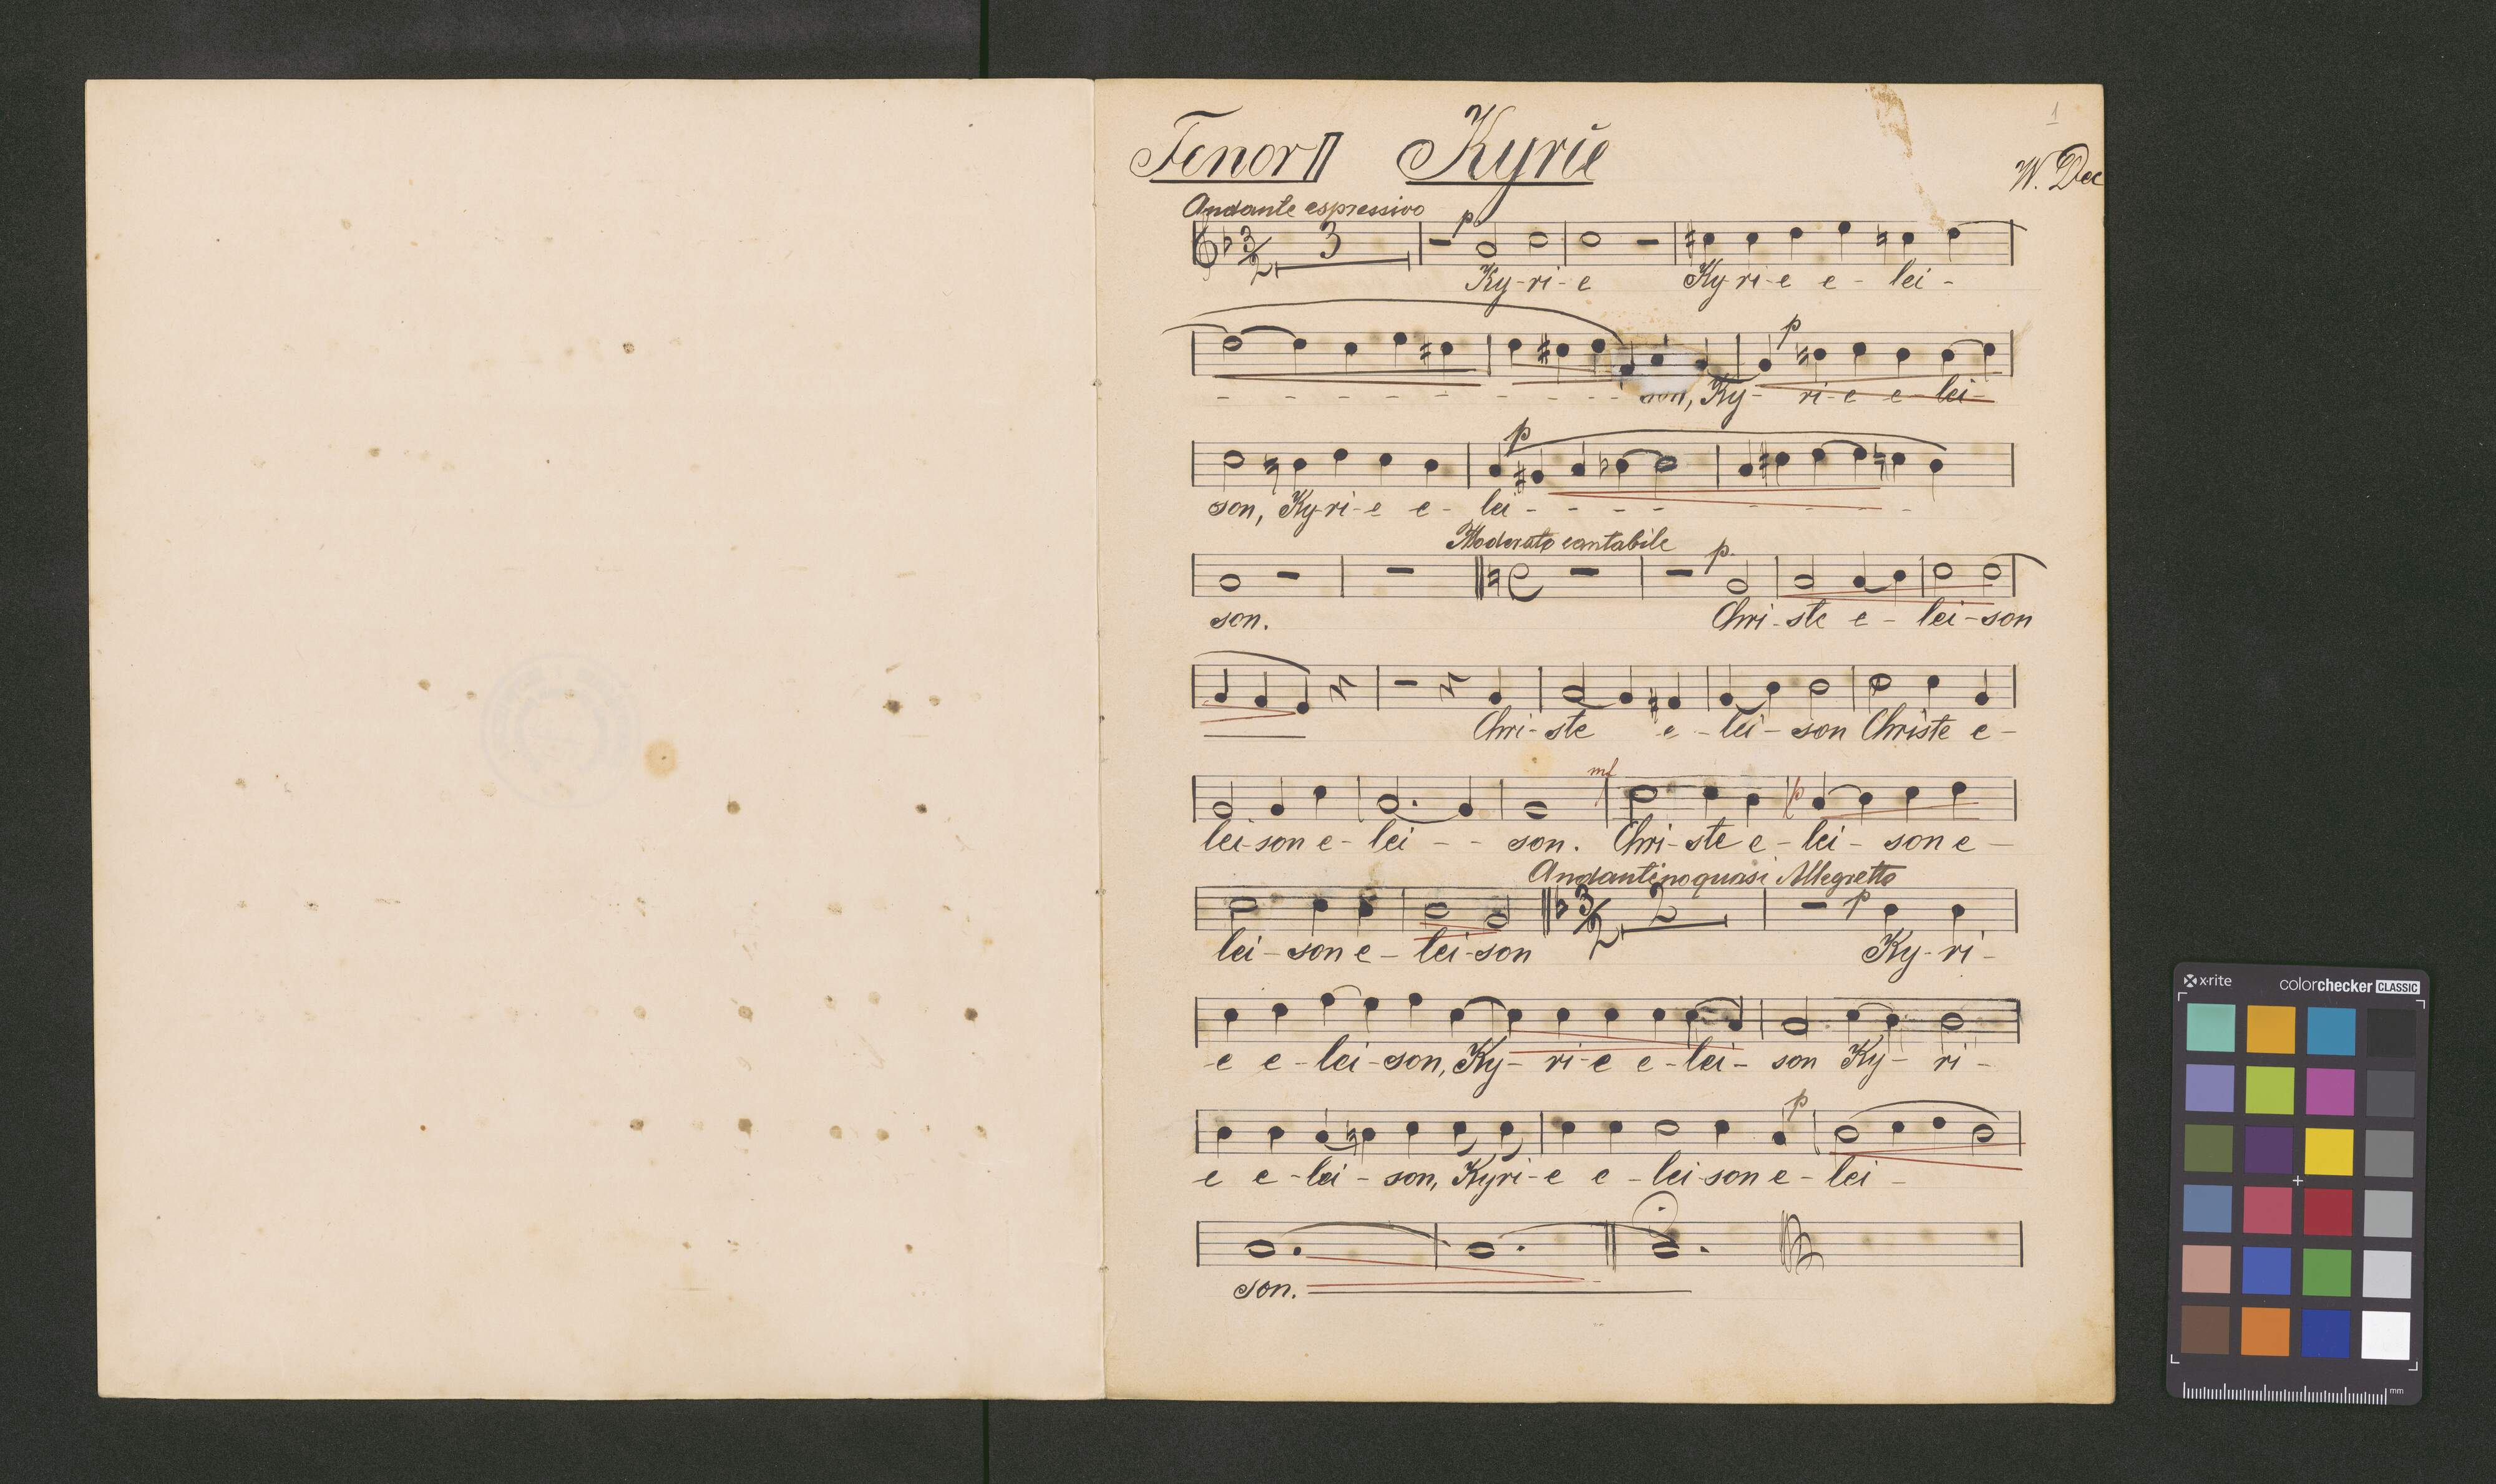 1
Tenor II Kyrie
W. Dec
Andante espressivo
3/2 3 p
Ky-ri-e Ky-ri-e e-lei-
p
- - - - - - - - - son, Ky- ri-e e-lei-
p
son, Ky-ri-e e- lei - - - - - - -
Moderato cantabile p.
son. Chri-ste e-lei-son
Chri-ste e-lei-son Christe e-
mf p
lei-son e-lei - - son. Chri-ste e-lei- son e-
Andantino quasi Allegretto
3/2 2 p
lei-son e-lei-son Ky-ri-
-e e-lei-son, Ky-ri-e e-lei- son Ky- ri-
p
e e-lei-son, Kyri-e e-lei-son e-lei-
son.
x-rite colorchecker CLASSIC
mm